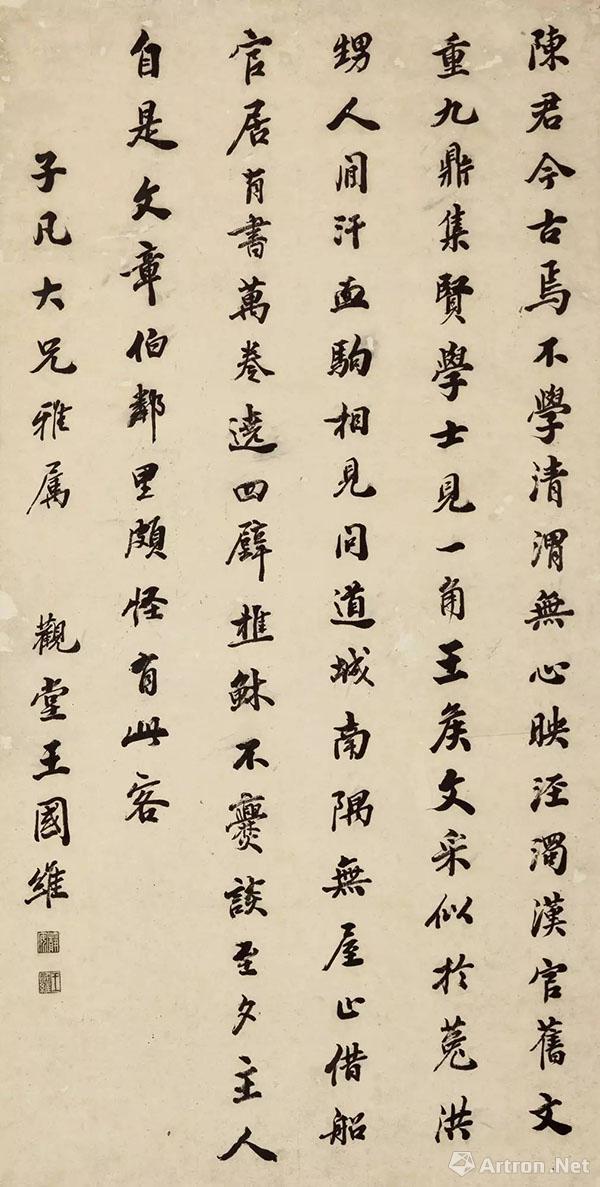 陳君今古焉不學清渭無心映涇濁漢官舊文
重九鼎集賢學士見一角王侯文采似於菟洪
甥人間汗血駒相見問道城南隅無屋止借船
官居有書萬卷遶四壁樵蘇不爨談至夕主人
自是文章伯鄰里頗怪有此客
子凡大兄雅属 觀堂王國維
Artron.Net